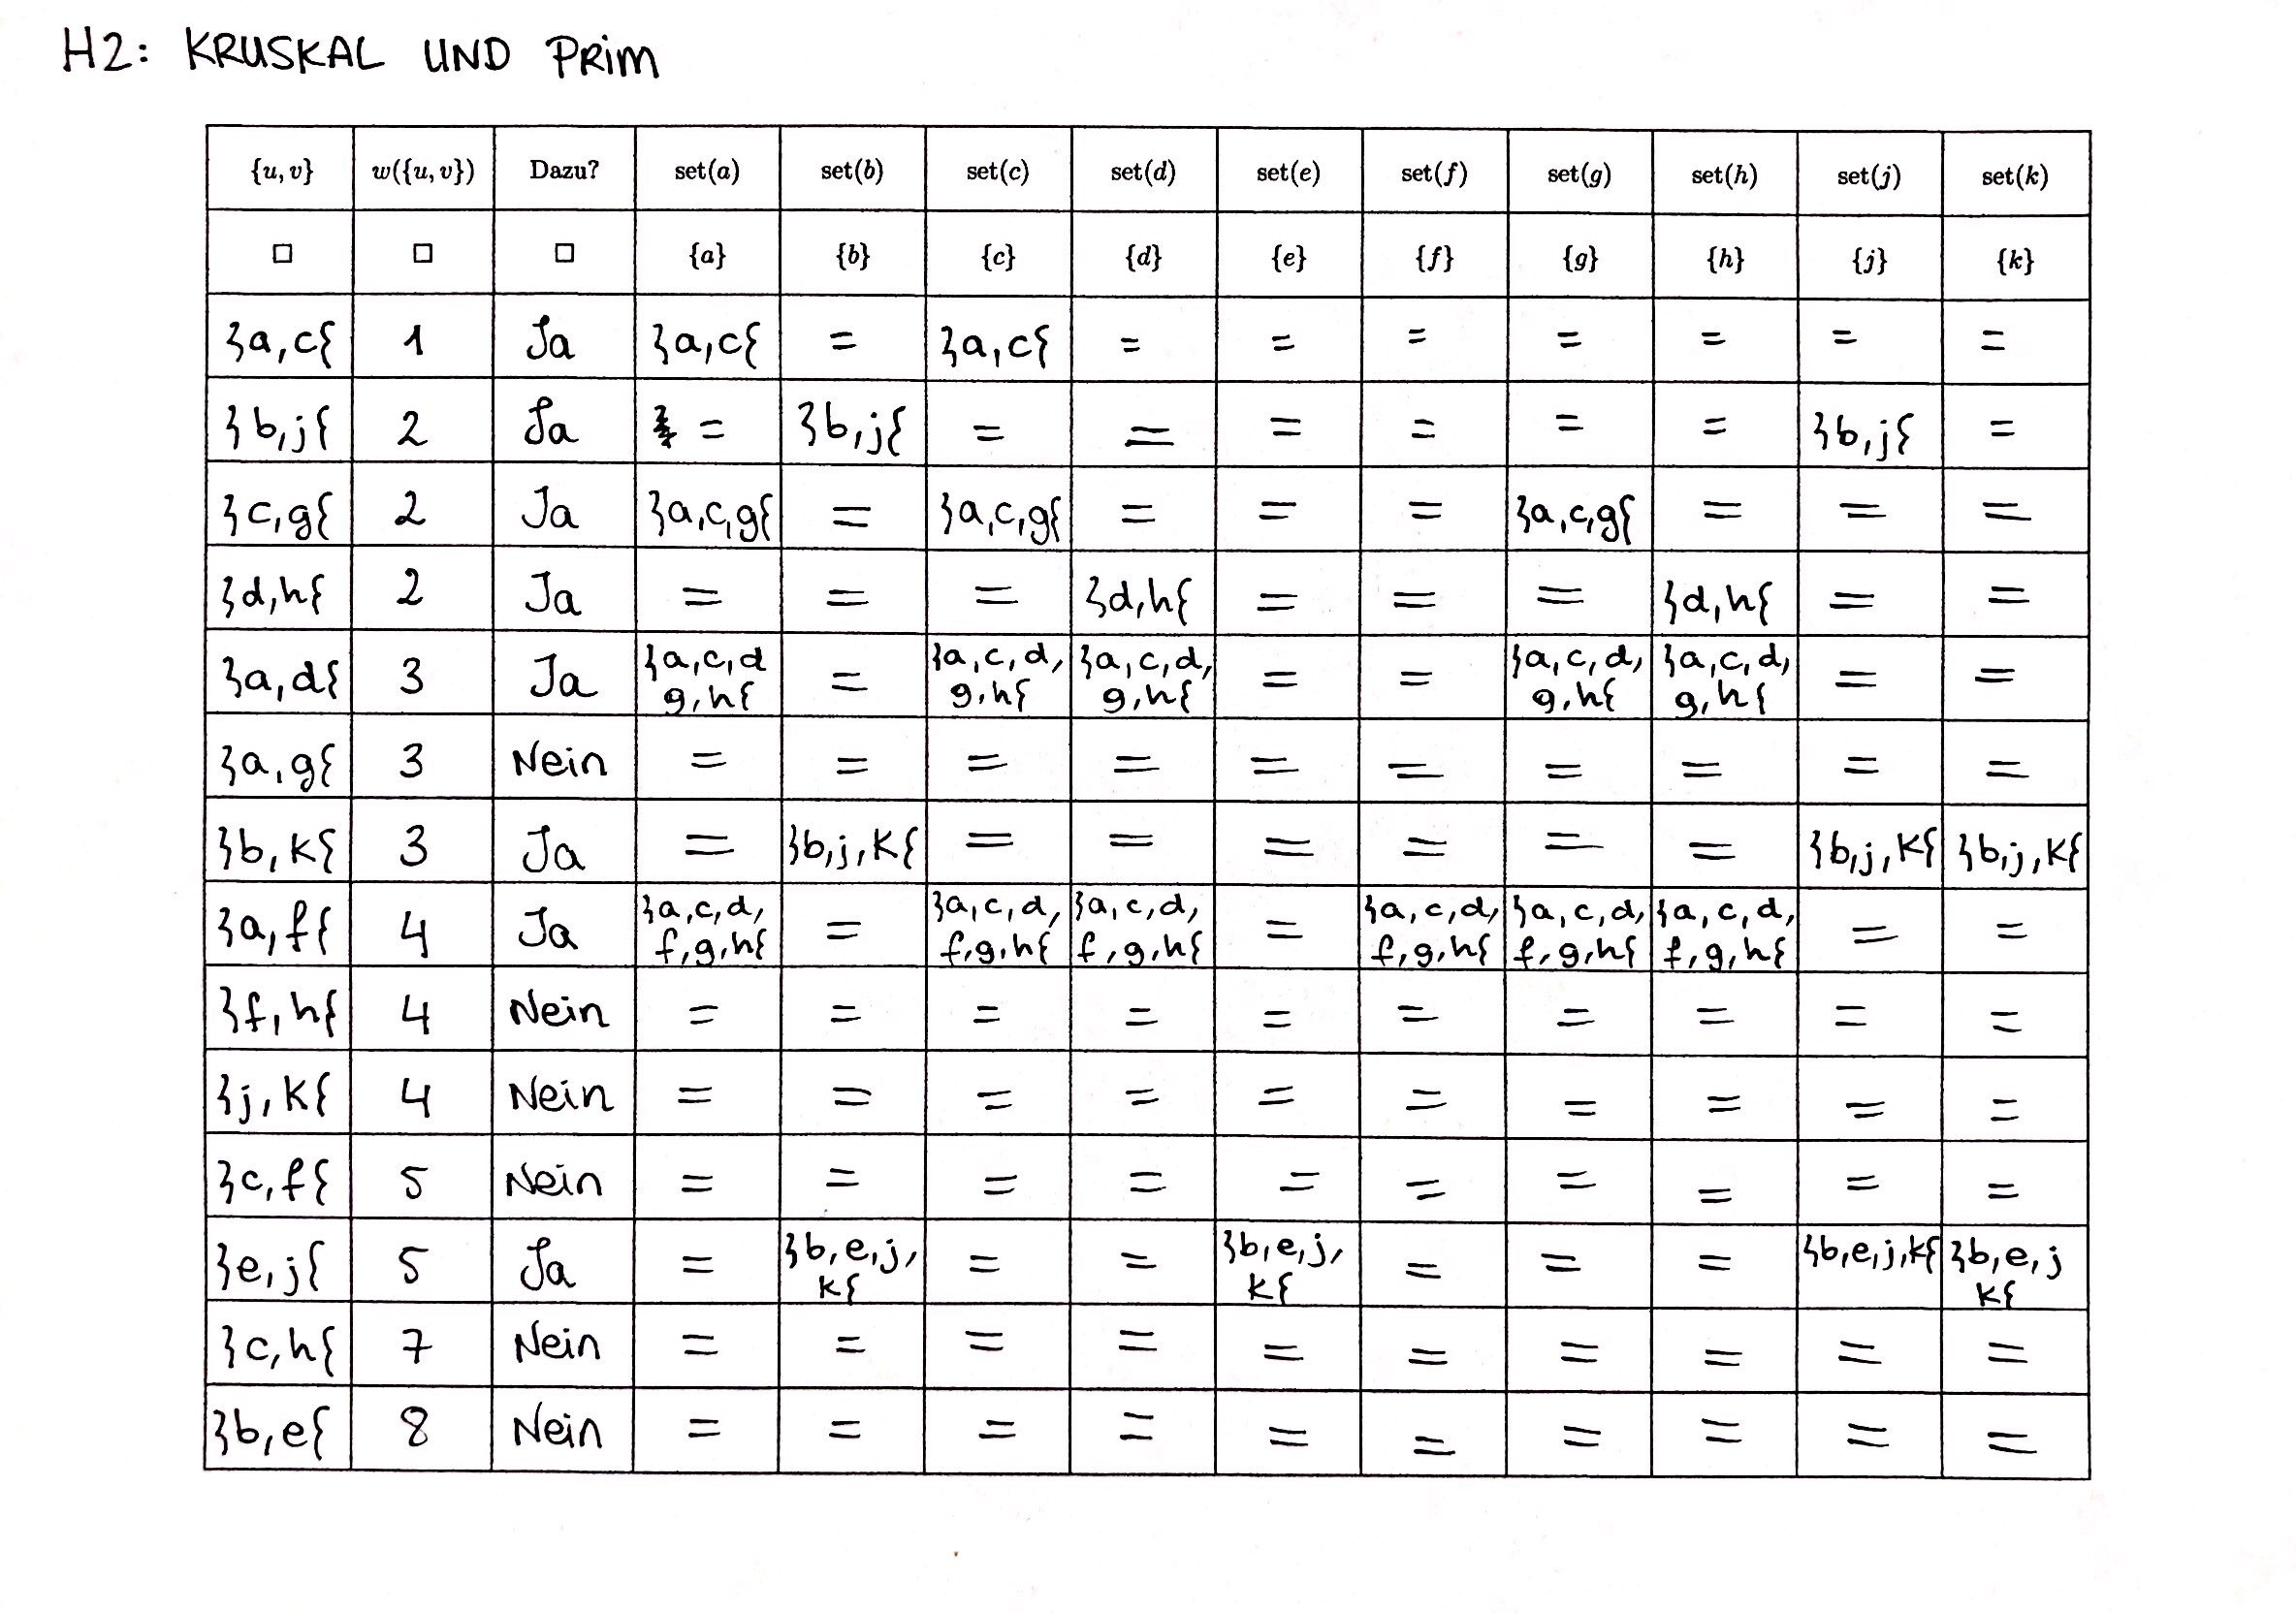 H2: KRUSKAL UND PRim
{u, v} w({u, v}) Dazu? set(a) set(b) set(c) set(d) set(e) set(f) set(g) set(h) set(j) set(k)
□ □ □ {a} {b} {c} {d} {e} {f} {g} {h} {j} {k}
}a,c{ 1 Ja }a,c{ = }a,c{ = = = = = = =
}b,j{ 2 Ja = }b,j{ = = = = = = }b,j{ =
}c,g{ 2 Ja }a,c,g{ = }a,c,g{ = = = }a,c,g{ = = =
}d,h{ 2 Ja = = = }d,h{ = = = }d,h{ = =
}a,d{ 3 Ja }a,c,d g,h{ = }a,c,d, g,h{ }a,c,d, g,h{ = = }a,c,d, g,h{ }a,c,d, g,h{ = =
}a,g{ 3 Nein = = = = = = = = = =
}b,k{ 3 Ja = }b,j,k{ = = = = = = }b,j,k{ }b,j,k{
}a,f{ 4 Ja }a,c,d, f,g,h{ = }a,c,d, f,g,h{ }a,c,d, f,g,h{ = }a,c,d, f,g,h{ }a,c,d, f,g,h{ }a,c,d, f,g,h{ = =
}f,h{ 4 Nein = = = = = = = = = =
}j,k{ 4 Nein = = = = = = = = = =
}c,f{ 5 Nein = = = = = = = = = =
}e,j{ 5 Ja = }b,e,j, k{ = = }b,e,j, k{ = = = }b,e,j,k{ }b,e,j k{
}c,h{ 7 Nein = = = = = = = = = =
}b,e{ 8 Nein = = = = = = = = = =